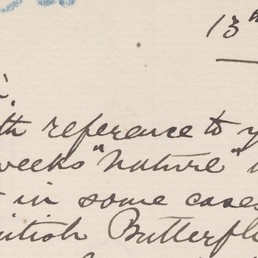 13th
th reference to y
weeks "Nature"
t in some cases
ritish Butterfl